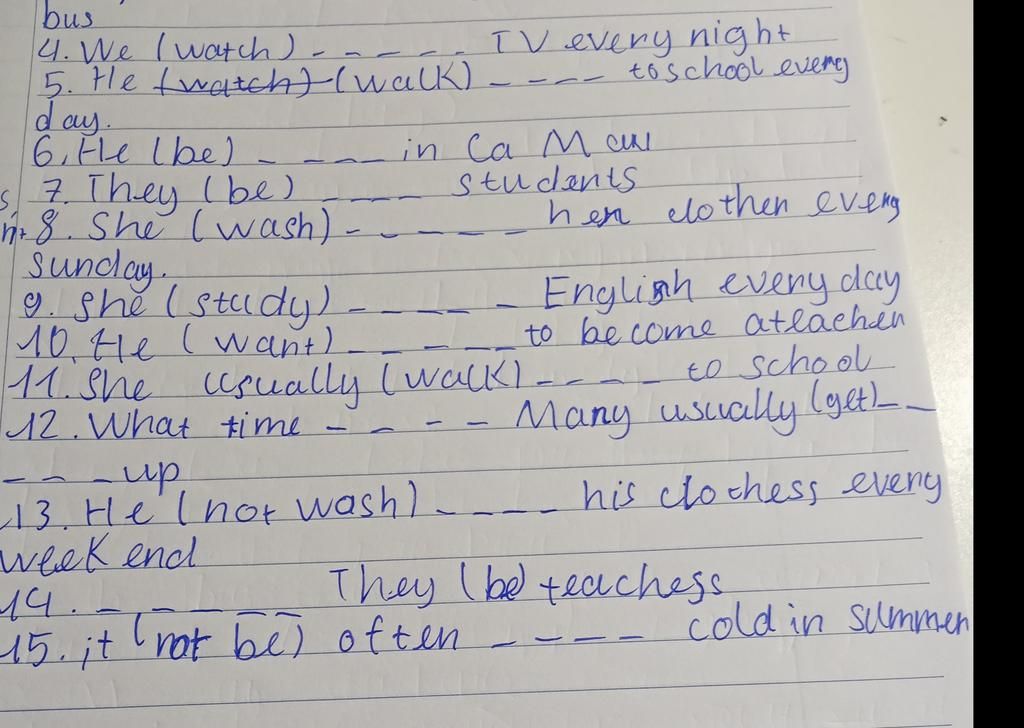 bus
4. We (watch) ----- TV every night
5. He (watch) (walk) ---- to school every
day.
6. He (be) ---- in Ca Mau
7. They (be) ---- students
8. She (wash) ----- her clother every
Sunday.
9. She (study) ----- English every day
10. He (want) ----- to become a teacher
11. She usually (walk) ---- to school
12. What time ---- Mary usually (get) --
--- up
13. He (not wash) ---- his clothess every
week end
14. ----- They (be) teachess
15. it (not be) often ---- cold in summer